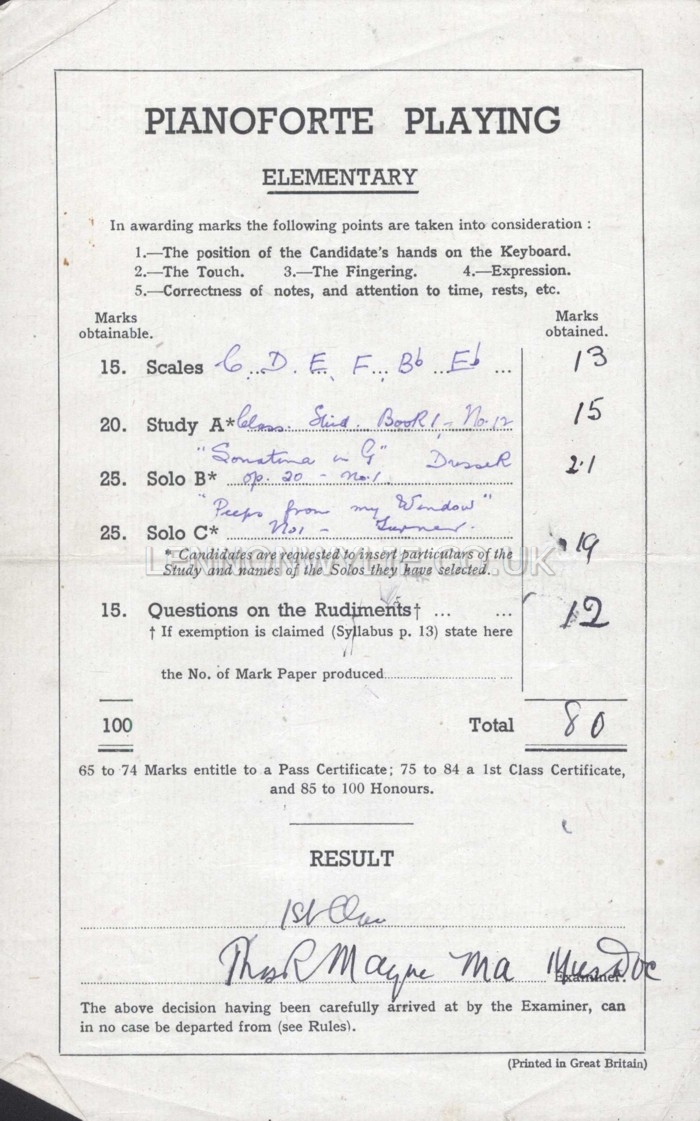 PIANOFORTE PLAYING
ELEMENTARY
In awarding marks the following points are taken into consideration :
1.—The position of the Candidate's hands on the Keyboard.
2.—The Touch. 3.—The Fingering. 4.—Expression.
5.—Correctness of notes, and attention to time, rests, etc.
Marks obtainable. Marks obtained.
15. Scales C D E F Bb Eb ... 13
20. Study A* Class. Stud. Book 1 - No. 12 15
"Sonatina in G"
25. Solo B* op. 20 - No. 1 21
"Peeps from my Window"
25. Solo C* No 1 - Turner. 19
* Candidates are requested to insert particulars of the
Study and names of the Solos they have selected.
LENNONWYLIE.CO.UK
15. Questions on the Rudiments† ... ... 12
† If exemption is claimed (Syllabus p. 13) state here
the No. of Mark Paper produced
100 Total 80
65 to 74 Marks entitle to a Pass Certificate; 75 to 84 a 1st Class Certificate,
and 85 to 100 Honours.
RESULT
1st Class
Thos R Mayne MA Mus Doc
Examiner.
The above decision having been carefully arrived at by the Examiner, can
in no case be departed from (see Rules).
(Printed in Great Britain)